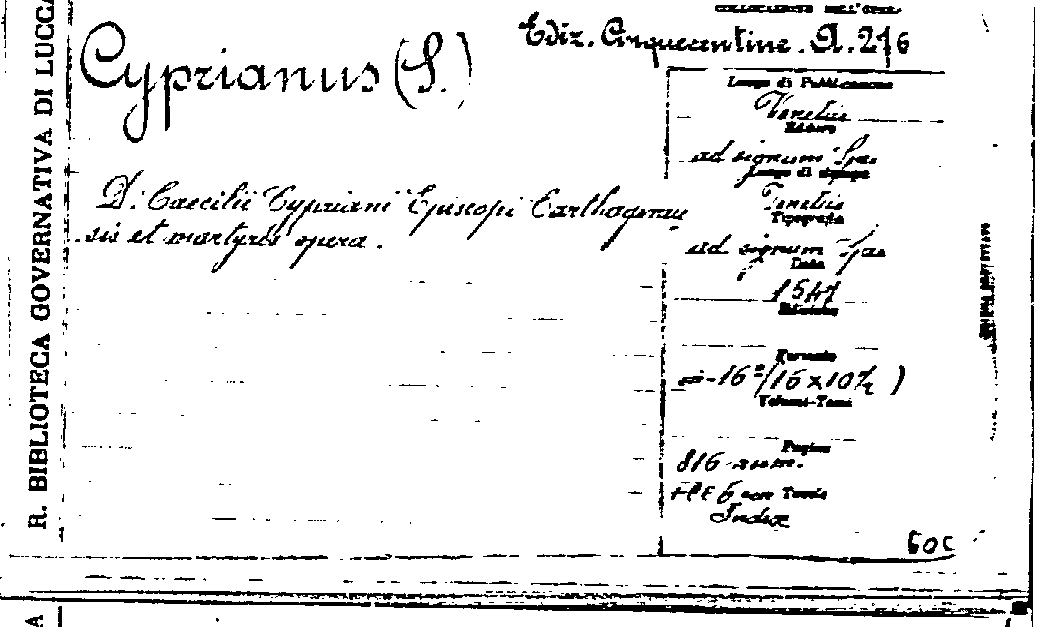 R. BIBLIOTECA GOVERNATIVA DI LUCCA
COLLOCAZIONE DELL'OPERA
Ediz. Cinquecentine. A. 216
Cyprianus (S.)
D. Caecilii Cypriani Episcopi Carthagenen
sis et martyris opera.
Luogo di Pubblicazione
Venetiis
Editore
ad signum Spei
Luogo di stampa
Venetiis
Tipografia
ad signum Spei
Data
1547
Edizione
Formato
in-16º (16 x 10½)
Volumi-Tomi
Pagine
816 num.
Tavole
Index